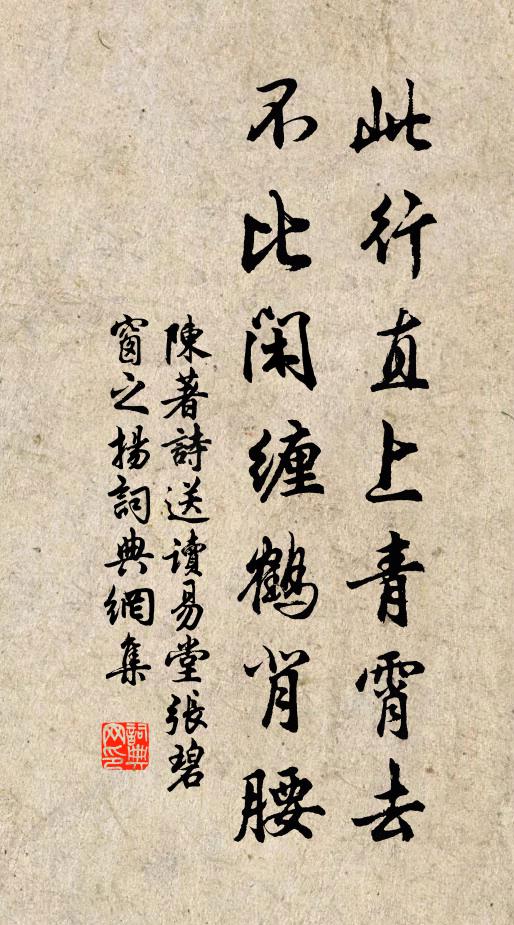 此行直上青霄去
不比闲缠鹤背腰
陳著詩送讀易堂張碧
窗之揚詞典網集
詞典
网印